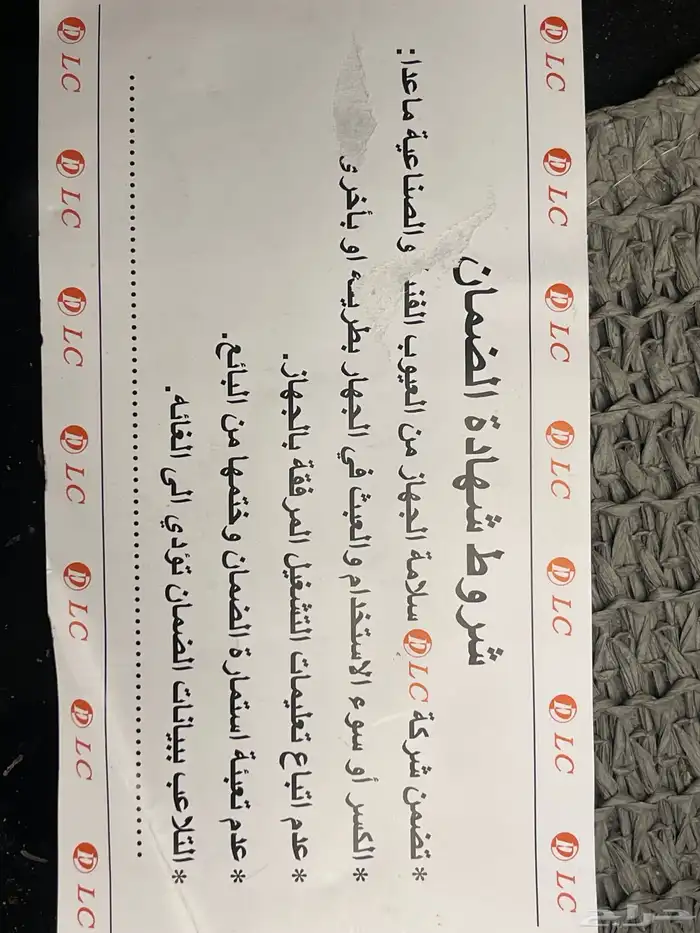 DLC DLC DLC DLC DLC DLC DLC
شروط شهادة الضمان
* تضمن شركة DLC سلامة الجهاز من العيوب والصناعية ماعدا:
* الكسر أو سوء الاستخدام والعبث في الجهاز بطريقة او بأخرى
* عدم اتباع تعليمات التشغيل المرفقة بالجهاز.
* عدم تعبئة استمارة الضمان وختمها من البائع.
* التلاعب ببيانات الضمان تؤدي الى الغائه.
DLC DLC DLC DLC DLC DLC DLC
حراج